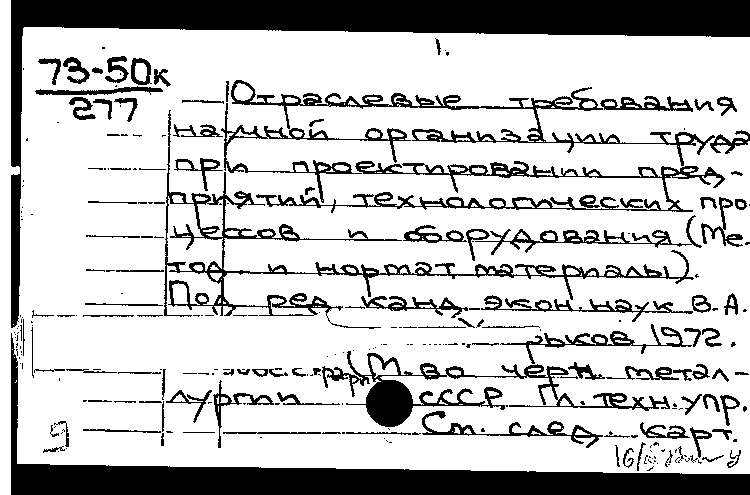 1.
73-50к
277
Отраслевые требования
научной организации труда
при проектировании пред-
приятий, технологических про-
цессов и оборудования (Ме-
тод. и нормат. материалы).
Под ред. канд. экон. наук В.А.
рыков, 1972.
(М-во черн. метал-
лургии СССР. Гл. техн. упр.
См. след. карт.